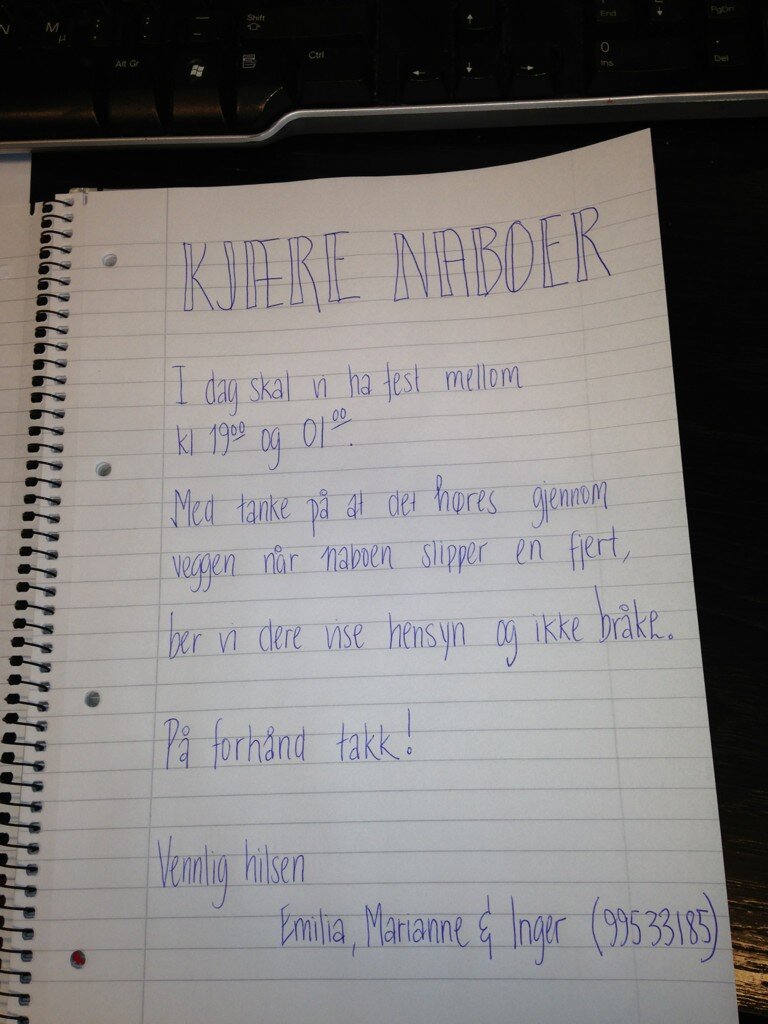 N M µ : . – _ Shift End PgDn
Alt Gr Ctrl 0 Ins . Del
KJÆRE NABOER
I dag skal vi ha fest mellom
kl 19⁰⁰ og 01⁰⁰.
Med tanke på at det høres gjennom
veggen når naboen slipper en fjert,
ber vi dere vise hensyn og ikke bråke.
På forhånd takk!
Vennlig hilsen
Emilia, Marianne & Inger (99533185)